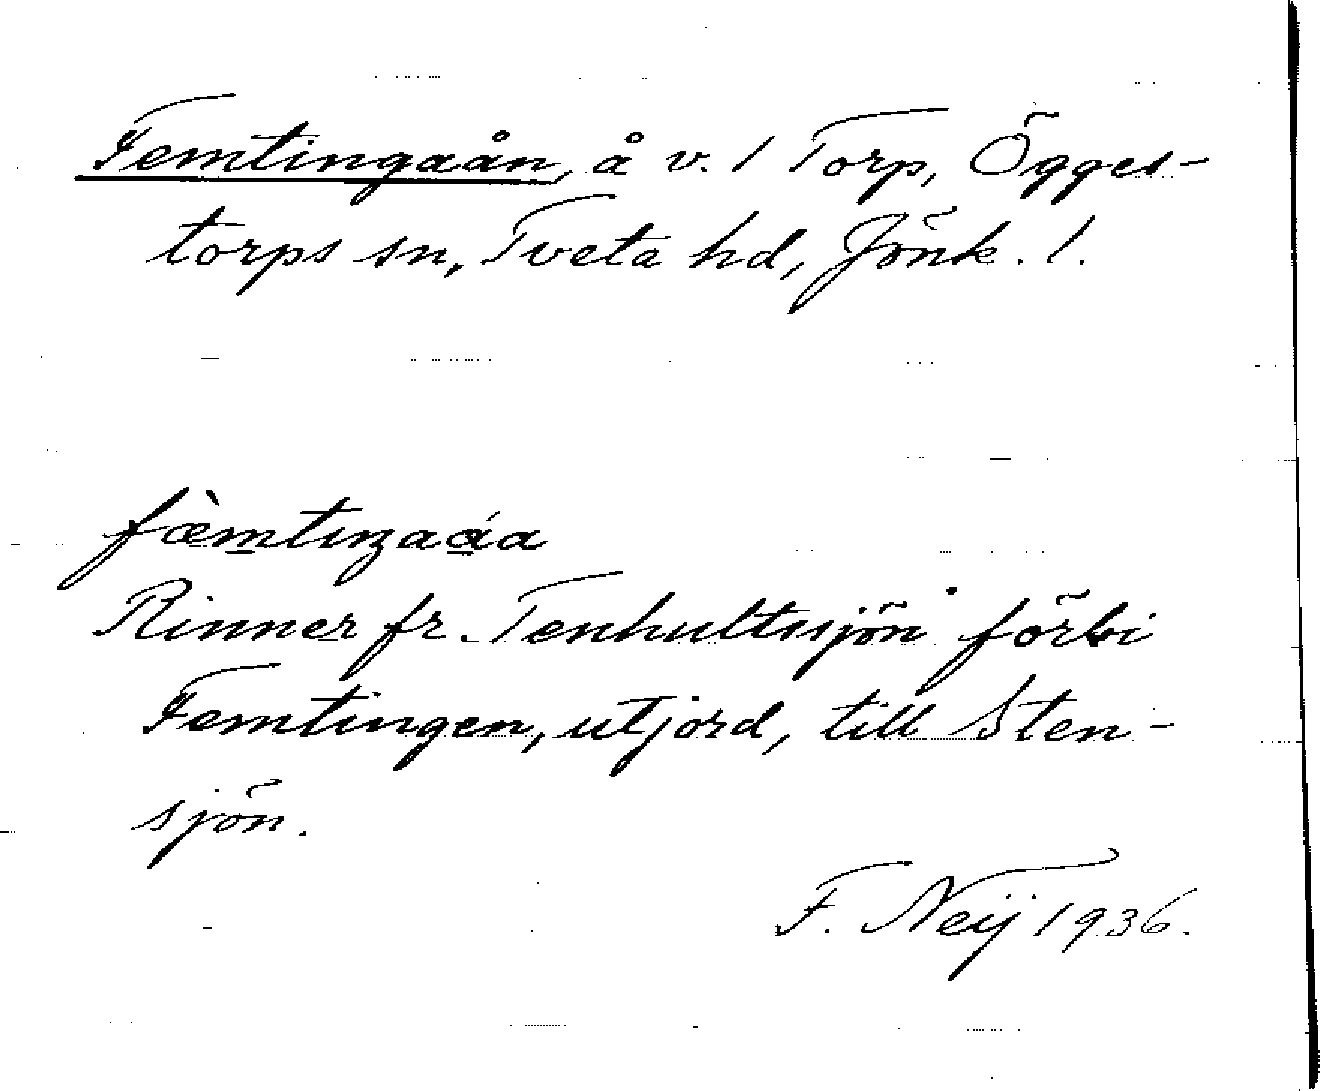 Femtingaån, å v. 1 Torp, Ögges-
torps sn, Tveta hd, Jönk. l.
fæ̀mtıŋaáa
Rinner fr. Tenhultssjön förbi
Femtingen, utjord, till Sten-
sjön.
F. Neij 1936.